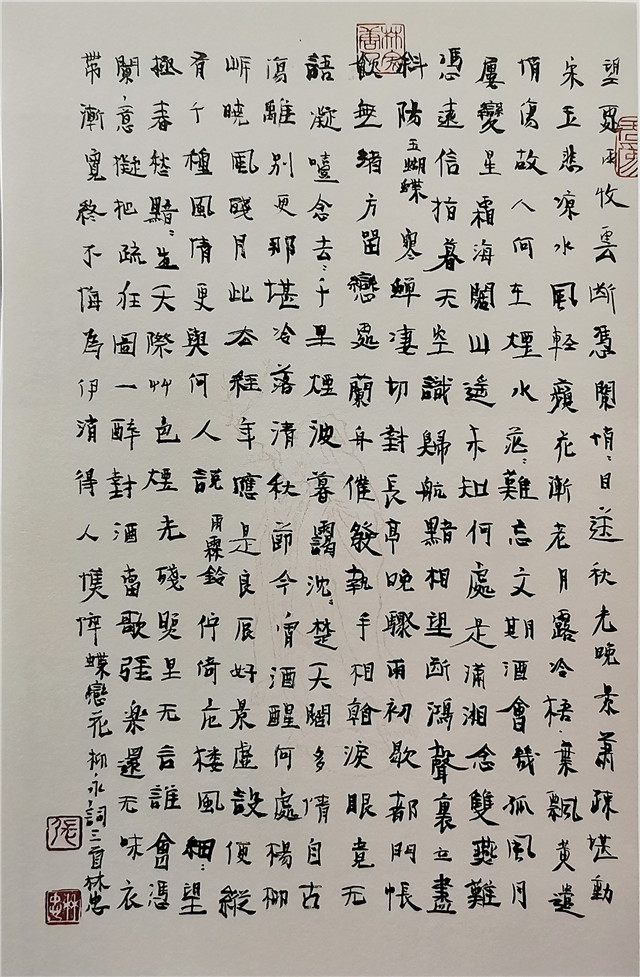 望處雨收雲断憑闌悄〻目送秋光晚景蕭疎堪動
宋玉悲凉水風輕蘋花漸老月露冷梧葉飄黄遣
情傷故人何在煙水茫〻難忘文期酒會幾孤風月
屢變星霜海闊山遥未知何處是瀟湘念雙燕難
憑遠信指暮天空識歸航黯相望断鴻聲裏立盡
斜陽 玉蝴蝶 寒蟬凄切對長亭晚驟雨初歇都門帳
飲無緒方留戀處蘭舟催發執手相看淚眼竟无
語凝噎念去〻千里煙波暮靄沈〻楚天闊多情自古
傷離别更那堪冷落清秋節今宵酒醒何處楊柳
岸曉風殘月此去經年應是良辰好景虛設便縱
有千種風情更與何人說 雨霖鈴 佇倚危楼風細〻望
極春愁黯〻生天際艸色煙光殘照里无言誰會憑
闌意擬把疏狂圖一醉對酒當歌强樂還无味衣
帶漸寬終不悔為伊消得人憔悴 蝶戀花 柳永詞三首林忠
林忠